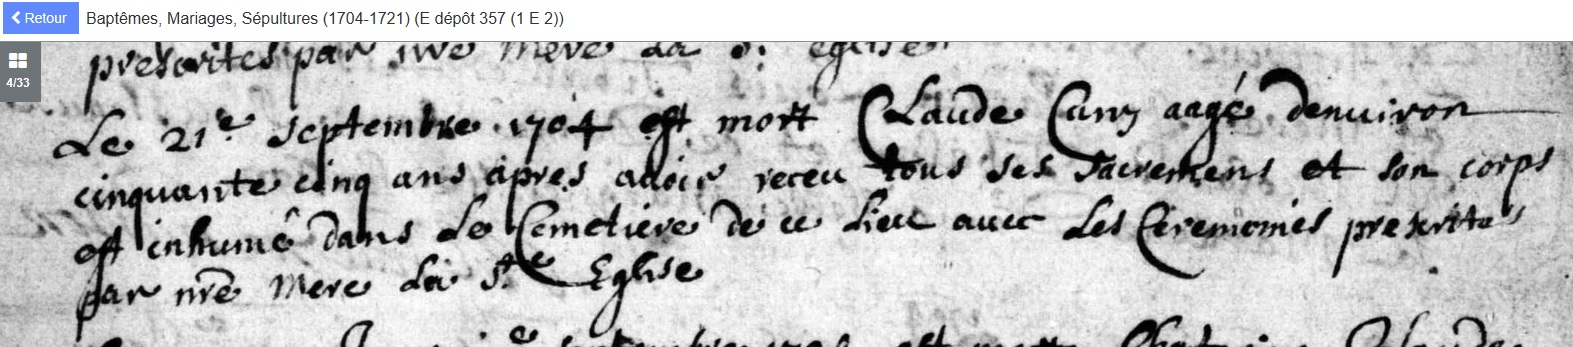 Retour Baptêmes, Mariages, Sépultures (1704-1721) (E dépôt 357 (1 E 2))
4/33
prescrites par nre mere la Ste eglise
Le 21e septembre 1704 est mort Claude Cuny aagé denuiron
cinquante cinq ans apres auoir receu tous ses sacremens et son corps
est inhumé dans le Cemetiere de ce lieu auec les Ceremonies prescrites
par nre mere la Ste Eglise
septembre est morte